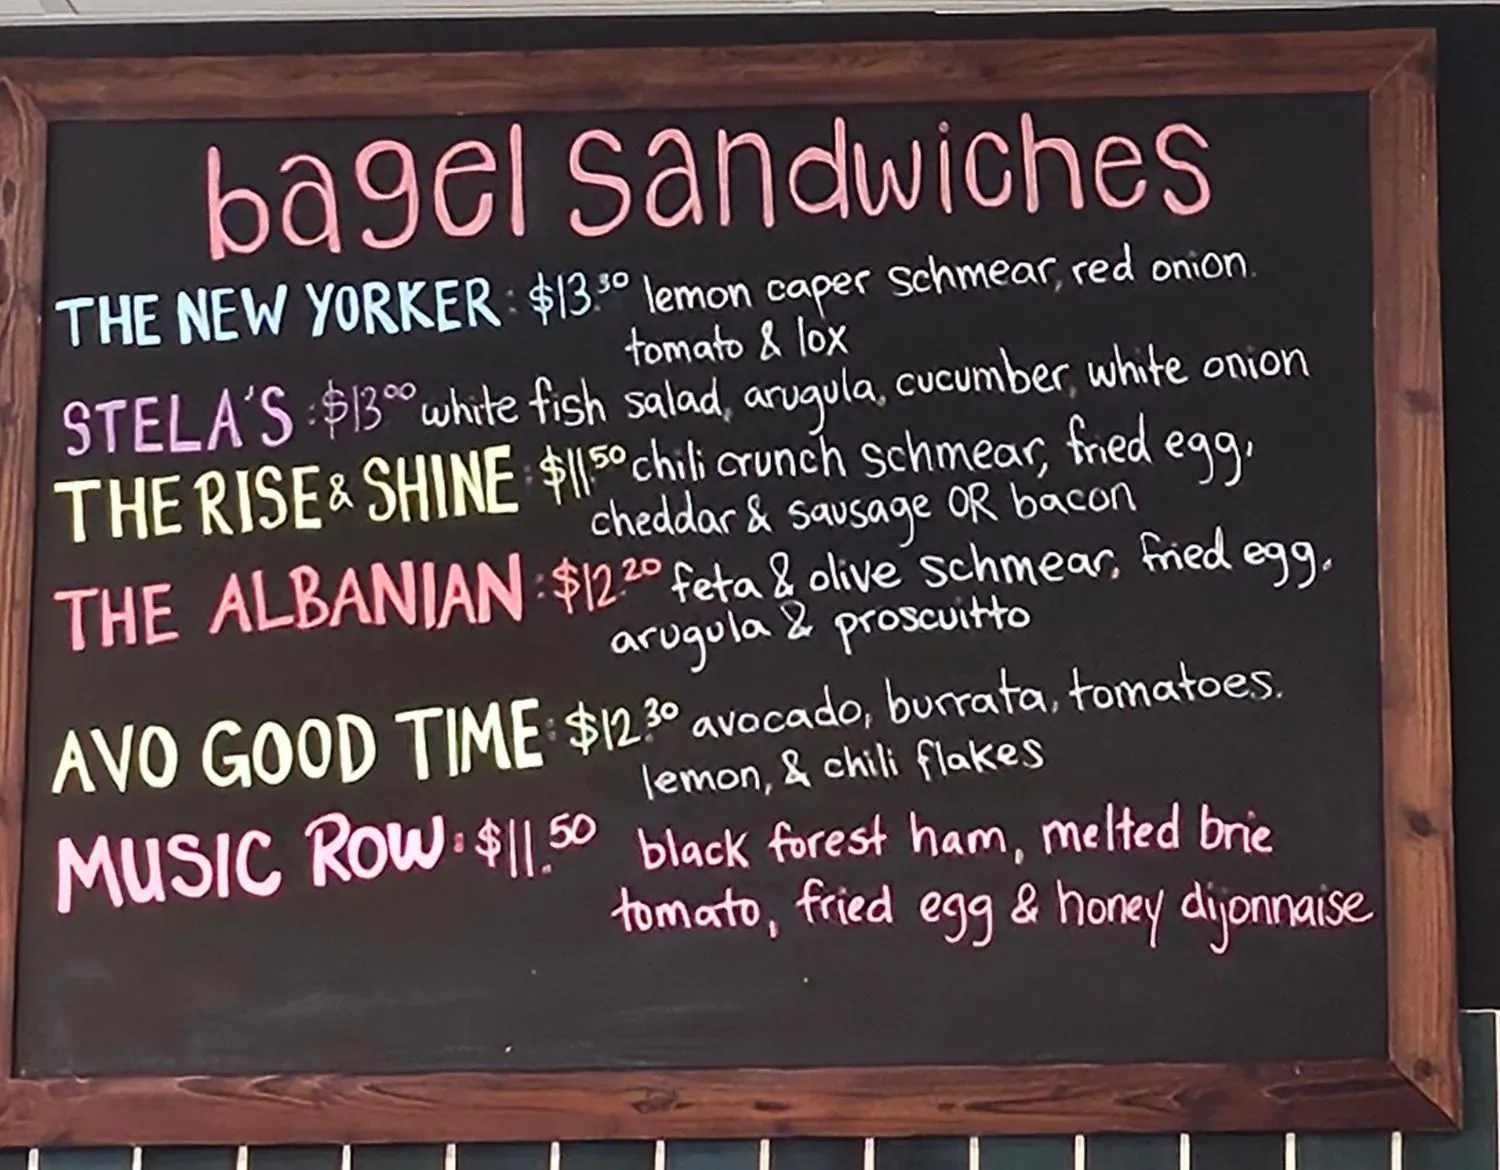 bagel sandwiches
THE NEW YORKER: $13.30 lemon caper schmear, red onion.
tomato & lox
STELA'S: $13.00 white fish salad, arugula, cucumber, white onion
THE RISE & SHINE: $11.50 chili crunch schmear, fried egg,
cheddar & sausage OR bacon
THE ALBANIAN: $12.20 feta & olive schmear, fried egg,
arugula & proscuitto
AVO GOOD TIME: $12.30 avocado, burrata, tomatoes.
lemon, & chili flakes
MUSIC ROW: $11.50 black forest ham, melted brie
tomato, fried egg & honey dijonnaise